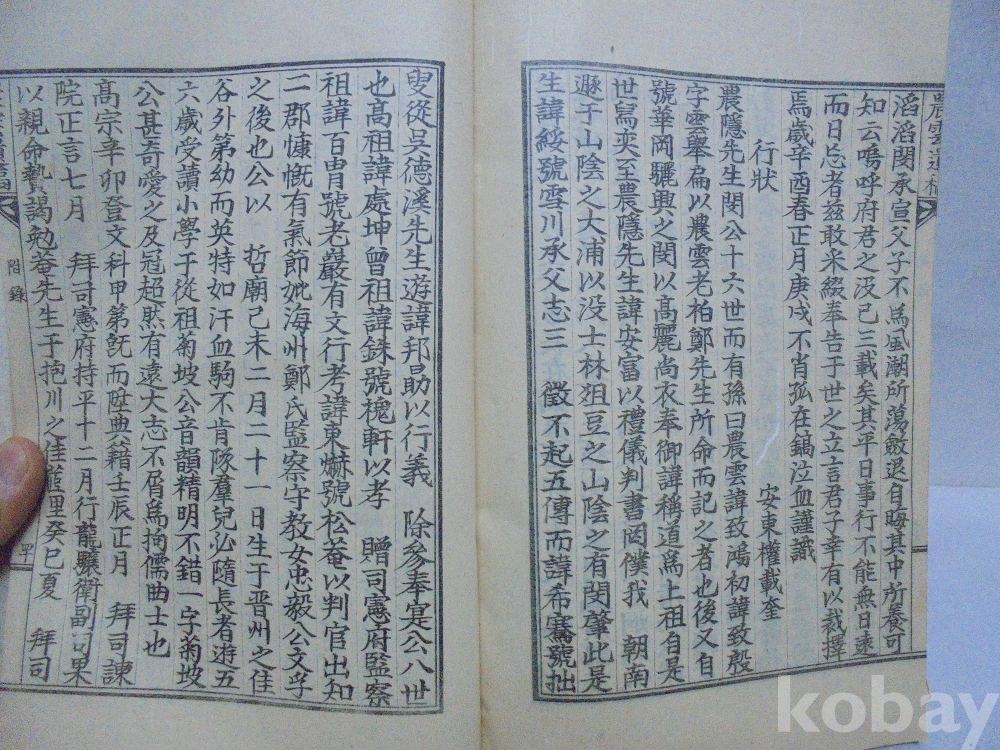 農雲遺稿
滔滔閔承宣父子不爲風潮所蕩斂退自晦其中所養可
知云嗚呼府君之汲已三載矣其平日事行不能無日遠
而日忘者玆敢采綴奉告于世之立言君子幸有以裁擇
焉歲辛酉春正月庚戌不肖孤在鎬泣血謹識
行狀 安東權載奎
農隱先生閔公十六世而有孫曰農雲諱致鴻初諱致殷
字雲擧扁以農雲老柏鄭先生所命而記之者也後又自
號華岡驪興之閔以高麗尚衣奉御諱稱道爲上祖自是
世舄奕至農隱先生諱安富以禮儀判書罔僕我 朝南
遯于山陰之大浦以没士林俎豆之山陰之有閔肇此是
生諱綏號雪川承父志三 徵不起五傳而諱希騫號拙
叟從吳德溪先生遊諱邦昜以行義 除參奉寔公八世
也高祖諱處坤曾祖諱銖號槐軒以孝 贈司憲府監察
祖諱百胄號老巖有文行考諱東爀號松菴以判官出知
二郡慷慨有氣節妣海州鄭氏監察守教女忠毅公文孚
之後也公以 哲廟己未二月二十一日生于晋州之佳
谷外第幼而英特如汗血駒不肯隊羣兒必隨長者遊五
六歲受讀小學于從祖菊坡公音韻精明不錯一字菊坡
公甚奇愛之及冠超然有遠大志不屑爲拘儒曲士也
高宗辛卯登文科甲第旣而陞典籍壬辰正月 拜司諫
院正言七月 拜司憲府持平十二月行龍驤衛副司果
以親命贄謁勉菴先生于抱川之佳 里癸巳夏 拜司
附錄
kobay